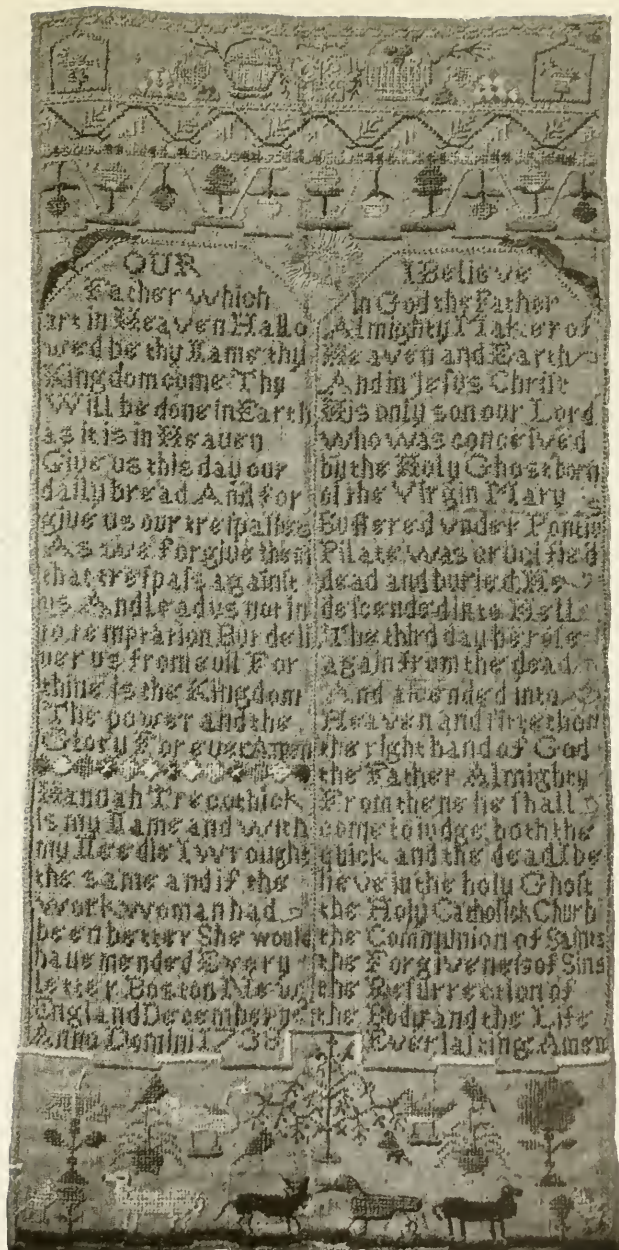 OUR
Father which
art in Heaven Hallo
wed be thy Name thy
Kingdom come Thy
Will be done in Earth
as it is in Heaven
Give us this day our
daily bread And for
give us our treſpaſſes
As we forgive them
that treſpaſs againſt
us And Lead us not in
to temptation But deli
ver us from evil For
thine is the Kingdom
The power and the
Glory For ever Amen
Hannah Trecothick
is my Name and with
my Needle I wrought
the same and if the
work woman had
been better She would
have mended Every
letter Boston New
England December ye
Anno Domini 1738
I Believe
In God the Father
Almighty Maker of
Heaven and Earth
And in Jeſus Chriſt
His only son our Lord
who was conceived
by the Holy Ghost born
of the Virgin Mary
Suffered vnder Pontius
Pilate was crucified
dead and buried He
deſcended into Hell
The third day he roſe
again from the dead
And aſcended into
Heaven and ſitteth on
the right hand of God
the Father Almighty
From thens he ſhall
come to judge both the
quick and the dead I be
lieve in the holy Ghoſt
the Holy Catholick Church
the Communion of Saints
the Forgiveneſs of Sins
the Reſurrection of
the Body and the Life
Everlaſting Amen